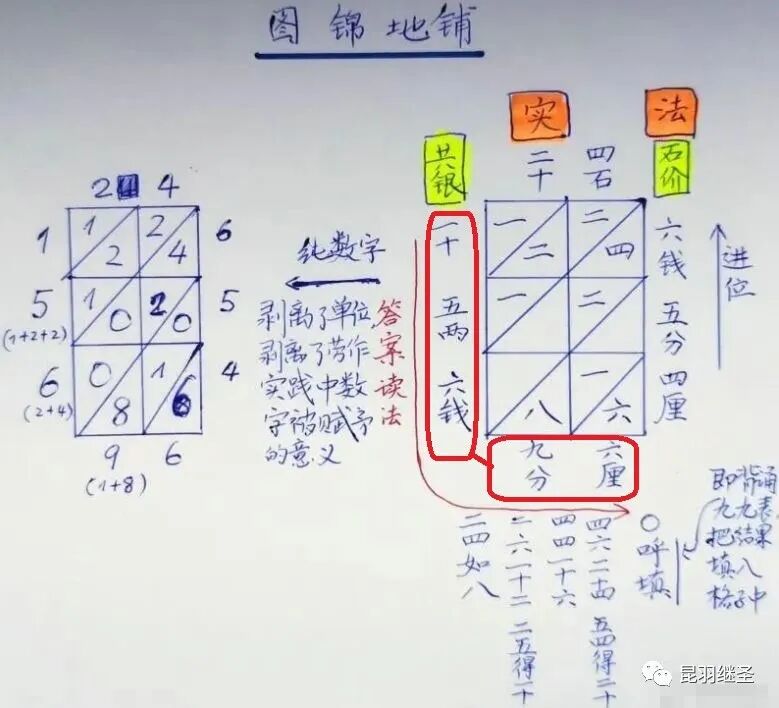 图锦地铺
实
法
共银
二十
四石
石价
2 4
1
1 2
2 4
6
5
1 0
2 0
5
(1+2+2)
6
0 8
1 6
4
(2+4)
9
6
(1+8)
纯数字
剥离了单位,
剥离了劳作
实践中数
字被赋予
的意义
答案读法
一十
五两
六钱
九分
六厘
一 二
二 四
一
二
八
一 六
六钱
五分
四厘
进位
二四如八
二六一十二 二五得一十
四四一十六
四六二十四 五四得二十
〇呼填
即背诵
九九表,
把结果
填入
格子中
昆羽继圣